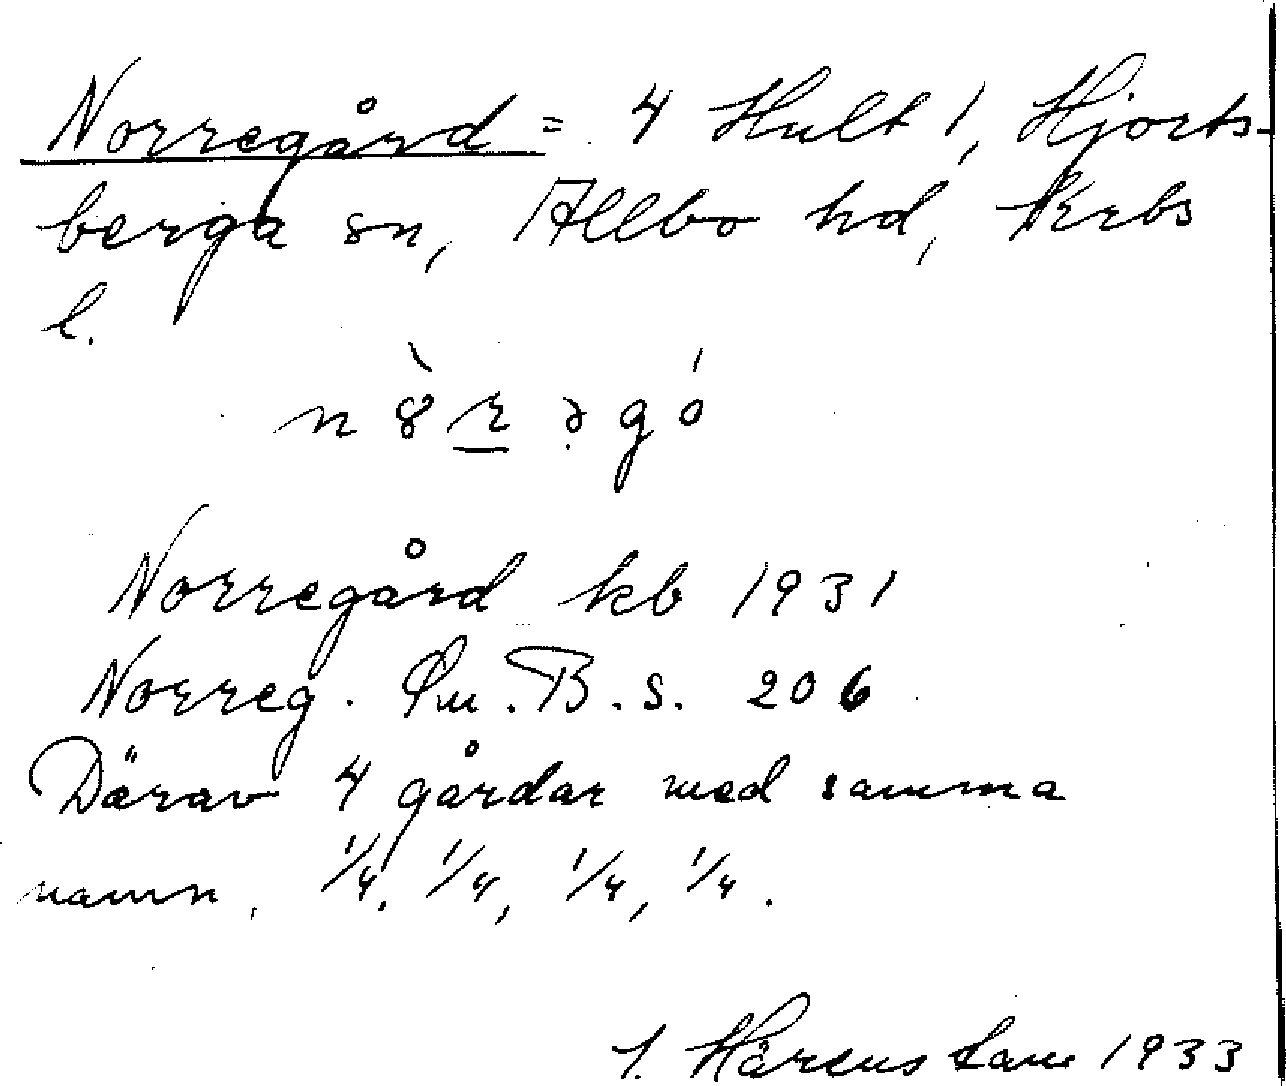 Norregård = 4 Hult 1, Hjorts-
berga sn, Allbo hd, Krbs
l.
Norregård kb 1931
Norreg. B. s. 206
Därav 4 gårdar med samma
namn, 1/4, 1/4, 1/4, 1/4.
1933